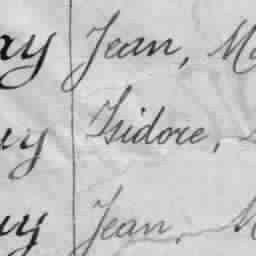 ay Jean, Ma
uy Isidore,
uy Jean, M